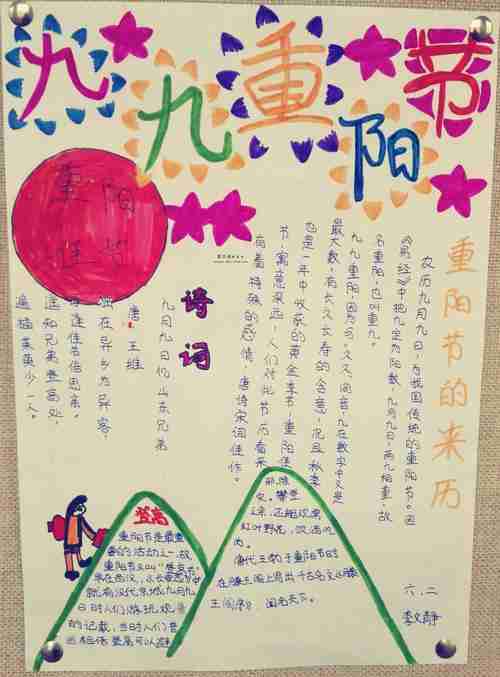 九九重阳节
重阳
佳节
重阳节的来历
农历九月九日，为我国传统的重阳节。因
《易经》中把九定为阳数，九月九日，两九相重，故
名重阳，也叫重九。
九九重阳，因为与“久久”同音，九在数字中又是
最大数，有长久长寿的含意，况且秋季
也是一年中收获的黄金季节，重阳佳
节，寓意深远，人们对此节历来
有着特殊的感情，唐诗宋词佳作。
诗词
九月九日忆山东兄弟
唐：王维
独在异乡为异客，
每逢佳节倍思亲。
遥知兄弟登高处，
遍插茱萸少一人。
登高
重阳节是最重
要的活动之一，故
重阳节又叫“登高节”
来在西汉，《长安志》中
就有汉代京城九月九
日时人们游玩观景
的记载，当时人们普
遍相信登高可以避
邪除
灾。攀登
之余，还能观赏
红叶野花，饮酒吃
肉。
唐代王勃于重阳节时
在滕王阁上写出千古名文《滕
王阁序》，闻名天下。
六.二
李文静